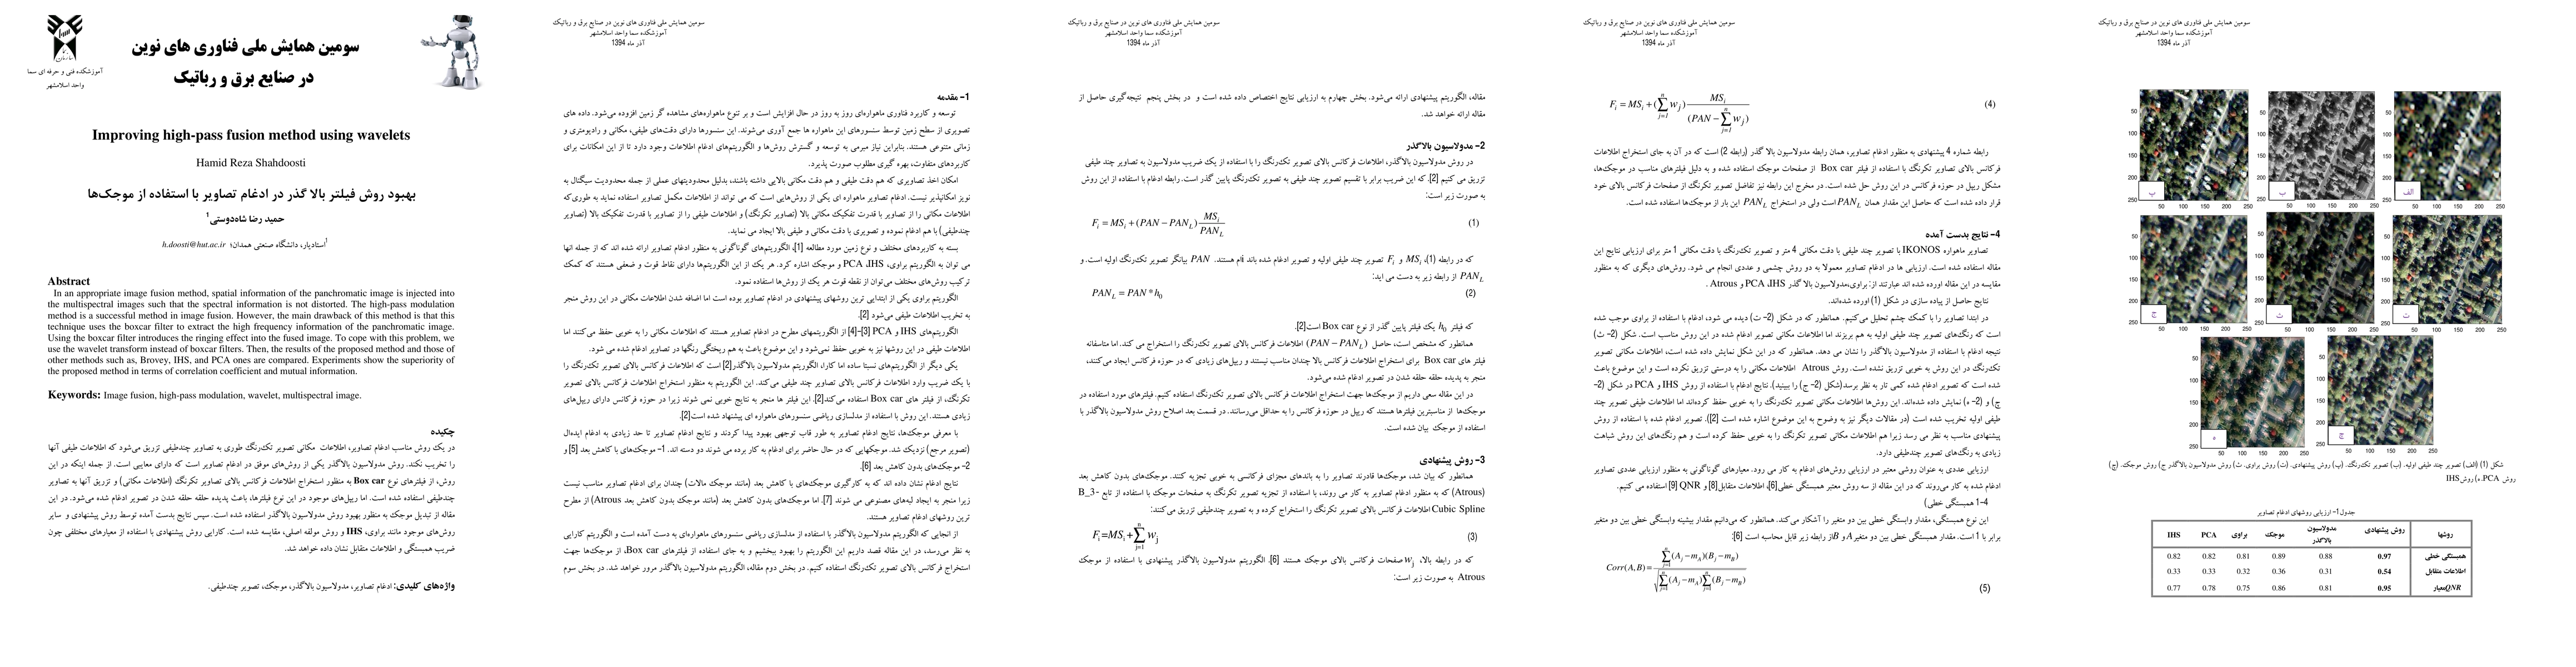 سومین همایش ملی فناوری های نوین
در صنایع برق و رباتیک
آموزشکده فنی و حرفه ای سما
واحد اسلامشهر
Improving high-pass fusion method using wavelets
Hamid Reza Shahdoosti
بهبود روش فیلتر بالا گذر در ادغام تصاویر با استفاده از موجک‌ها
حمید رضا شاه‌دوستی1
1استادیار، دانشگاه صنعتی همدان؛ h.doosti@hut.ac.ir
Abstract
In an appropriate image fusion method, spatial information of the panchromatic image is injected into
the multispectral images such that the spectral information is not distorted. The high-pass modulation
method is a successful method in image fusion. However, the main drawback of this method is that this
technique uses the boxcar filter to extract the high frequency information of the panchromatic image.
Using the boxcar filter introduces the ringing effect into the fused image. To cope with this problem, we
use the wavelet transform instead of boxcar filters. Then, the results of the proposed method and those of
other methods such as, Brovey, IHS, and PCA ones are compared. Experiments show the superiority of
the proposed method in terms of correlation coefficient and mutual information.
Keywords: Image fusion, high-pass modulation, wavelet, multispectral image.
چکیده
در یک روش مناسب ادغام تصاویر، اطلاعات مکانی تصویر تک‌رنگ طوری به تصاویر چندطیفی تزریق می‌شود که اطلاعات طیفی آنها
را تخریب نکند. روش مدولاسیون بالاگذر یکی از روش‌های موفق در ادغام تصاویر است که دارای معایبی است. از جمله اینکه در این
روش، از فیلترهای نوع Box car به منظور استخراج اطلاعات فرکانس بالای تصویر تکرنگ (اطلاعات مکانی) و تزریق آنها به تصاویر
چندطیفی استفاده شده است. اما ریپل‌های موجود در این نوع فیلترها، باعث پدیده حلقه حلقه شدن در تصویر ادغام شده می‌شود. در این
مقاله از تبدیل موجک به منظور بهبود روش مدولاسیون بالاگذر استفاده شده است. سپس نتایج بدست آمده توسط روش پیشنهادی و سایر
روش‌های موجود مانند براوی، IHS و روش مولفه اصلی، مقایسه شده است. کارایی روش پیشنهادی با استفاده از معیارهای مختلفی چون
ضریب همبستگی و اطلاعات متقابل نشان داده خواهد شد.
واژه‌های کلیدی: ادغام تصاویر، مدولاسیون بالاگذر، موجک، تصویر چندطیفی.
سومین همایش ملی فناوری های نوین در صنایع برق و رباتیک
آموزشکده سما واحد اسلامشهر
آذر ماه 1394
1- مقدمه
توسعه و کاربرد فناوری ماهواره‌ای روز به روز در حال افزایش است و بر تنوع ماهواره‌های مشاهده گر زمین افزوده می‌شود. داده های
تصویری از سطح زمین توسط سنسورهای این ماهواره ها جمع آوری می‌شوند. این سنسورها دارای دقت‌های طیفی، مکانی و رادیومتری و
زمانی متنوعی هستند. بنابراین نیاز مبرمی به توسعه و گسترش روش‌ها و الگوریتم‌های ادغام اطلاعات وجود دارد تا از این امکانات برای
کاربردهای متفاوت، بهره گیری مطلوب صورت پذیرد.
امکان اخذ تصاویری که هم دقت طیفی و هم دقت مکانی بالایی داشته باشند، بدلیل محدودیتهای عملی از جمله محدودیت سیگنال به
نویز امکانپذیر نیست. ادغام تصاویر ماهواره ای یکی از روش‌هایی است که می تواند از اطلاعات مکمل تصاویر استفاده نماید به طوری‌که
اطلاعات مکانی را از تصاویر با قدرت تفکیک مکانی بالا (تصاویر تکرنگ) و اطلاعات طیفی را از تصاویر با قدرت تفکیک بالا (تصاویر
چندطیفی) با هم ادغام نموده و تصویری با دقت مکانی و طیفی بالا ایجاد می نماید.
بسته به کاربردهای مختلف و نوع زمین مورد مطالعه [1]، الگوریتم‌های گوناگونی به منظور ادغام تصاویر ارائه شده اند که از جمله انها
می توان به الگوریتم براوی، PCA ،IHS و موجک اشاره کرد. هر یک از این الگوریتم‌ها دارای نقاط قوت و ضعفی هستند که کمک
ترکیب روش‌های مختلف می‌توان از نقطه قوت هر یک از روش‌ها استفاده نمود.
الگوریتم براوی یکی از ابتدایی ترین روشهای پیشنهادی در ادغام تصاویر بوده است اما اضافه شدن اطلاعات مکانی در این روش منجر
به تخریب اطلاعات طیفی می‌شود [2].
الگوریتم‌های IHS و PCA [3]-[4] از الگوریتمهای مطرح در ادغام تصاویر هستند که اطلاعات مکانی را به خوبی حفظ می‌کنند اما
اطلاعات طیفی در این روشها نیز به خوبی حفظ نمی‌شود و این موضوع باعث به هم ریختگی رنگها در تصاویر ادغام شده می شود.
یکی دیگر از الگوریتم‌های نسبتا ساده اما کارا، الگوریتم مدولاسیون بالاگذر[2] است که اطلاعات فرکانس بالای تصویر تک‌رنگ را
با یک ضریب وارد اطلاعات فرکانس بالای تصاویر چند طیفی می‌کند. این الگوریتم به منظور استخراج اطلاعات فرکانس بالای تصویر
تکرنگ، از فیلتر های Box car استفاده می‌کند[2]. این فیلتر ها منجر به نتایج خوبی نمی شوند زیرا در حوزه فرکانس دارای ریپل‌های
زیادی هستند. این روش با استفاده از مدلسازی ریاضی سنسورهای ماهواره ای پیشنهاد شده است[2].
با معرفی موجک‌ها، نتایج ادغام تصاویر به طور قاب توجهی بهبود پیدا کردند و نتایج ادغام تصاویر تا حد زیادی به ادغام ایده‌ال
(تصویر مرجع) نزدیک شد. موجکهایی که در حال حاضر برای ادغام به کار برده می شوند دو دسته اند. 1- موجک‌های با کاهش بعد [5] و
2- موجک‌های بدون کاهش بعد [6].
نتایج ادغام نشان داده اند که به کارگیری موجک‌های با کاهش بعد (مانند موجک مالات) چندان برای ادغام تصاویر مناسب نیست
زیرا منجر به ایجاد لبه‌های مصنوعی می شوند [7]. اما موجک‌های بدون کاهش بعد (مانند موجک بدون کاهش بعد Atrous) از مطرح
ترین روشهای ادغام تصاویر هستند.
از انجایی که الگوریتم مدولاسیون بالاگذر با استفاده از مدلسازی ریاضی سنسورهای ماهواره‌ای به دست آمده است و الگوریتم کارایی
به نظر می‌رسد، در این مقاله قصد داریم این الگوریتم را بهبود ببخشیم و به جای استفاده از فیلترهای Box car، از موجک‌ها جهت
استخراج فرکانس بالای تصویر تک‌رنگ استفاده کنیم. در بخش دوم مقاله، الگوریتم مدولاسیون بالاگذر مرور خواهد شد. در بخش سوم
سومین همایش ملی فناوری های نوین در صنایع برق و رباتیک
آموزشکده سما واحد اسلامشهر
آذر ماه 1394
مقاله، الگوریتم پیشنهادی ارائه می‌شود. بخش چهارم به ارزیابی نتایج اختصاص داده شده است و در بخش پنجم نتیجه‌گیری حاصل از
مقاله ارائه خواهد شد.
2- مدولاسیون بالاگذر
در روش مدولاسیون بالاگذر، اطلاعات فرکانس بالای تصویر تک‌رنگ را با استفاده از یک ضریب مدولاسیون به تصاویر چند طیفی
تزریق می کنیم [2]. که این ضریب برابر با تقسیم تصویر چند طیفی به تصویر تک‌رنگ پایین گذر است. رابطه ادغام با استفاده از این روش
به صورت زیر است:
F_i = MS_i + (PAN − PAN_L) MS_i / PAN_L (1)
که در رابطه (1)، MS_i و F_i تصویر چند طیفی اولیه و تصویر ادغام شده باند iام هستند. PAN بیانگر تصویر تک‌رنگ اولیه است. و
PAN_L از رابطه زیر به دست می اید:
PAN_L = PAN * h_0 (2)
که فیلتر h_0 یک فیلتر پایین گذر از نوع Box car است[2].
همانطور که مشخص است، حاصل (PAN − PAN_L) اطلاعات فرکانس بالای تصویر تک‌رنگ را استخراج می کند. اما متاسفانه
فیلتر های Box car برای استخراج اطلاعات فرکانس بالا چندان مناسب نیستند و ریپل‌های زیادی که در حوزه فرکانس ایجاد می‌کنند،
منجر به پدیده حلقه حلقه شدن در تصویر ادغام شده می‌شود.
در این مقاله سعی داریم از موجک‌ها جهت استخراج اطلاعات فرکانس بالای تصویر تک‌رنگ استفاده کنیم. فیلترهای مورد استفاده در
موجک‌ها از مناسبترین فیلترها هستند که ریپل در حوزه فرکانس را به حداقل می‌رسانند. در قسمت بعد اصلاح روش مدولاسیون بالاگذر با
استفاده از موجک بیان شده است.
3- روش پیشنهادی
همانطور که بیان شد، موجک‌ها قادرند تصاویر را به باندهای مجزای فرکانسی به خوبی تجزیه کنند. موجک‌های بدون کاهش بعد
(Atrous) که به منظور ادغام تصاویر به کار می روند، با استفاده از تجزیه تصویر تکرنگ به صفحات موجک با استفاده از تابع B_3-
Cubic Spline اطلاعات فرکانس بالای تصویر تکرنگ را استخراج کرده و به تصویر چندطیفی تزریق می‌کنند:
F_i = MS_i + ∑_{j=1}^{n} w_j (3)
که در رابطه بالا، w_j صفحات فرکانس بالای موجک هستند [6]. الگوریتم مدولاسیون بالاگذر پیشنهادی با استفاده از موجک
Atrous به صورت زیر است:
سومین همایش ملی فناوری های نوین در صنایع برق و رباتیک
آموزشکده سما واحد اسلامشهر
آذر ماه 1394
F_i = MS_i + (∑_{j=1}^{n} w_j) MS_i / (PAN − ∑_{j=1}^{n} w_j) (4)
رابطه شماره 4 پیشنهادی به منظور ادغام تصاویر، همان رابطه مدولاسیون بالا گذر (رابطه 2) است که در آن به جای استخراج اطلاعات
فرکانس بالای تصویر تکرنگ با استفاده از فیلتر Box car از صفحات موجک استفاده شده و به دلیل فیلترهای مناسب در موجک‌ها،
مشکل ریپل در حوزه فرکانس در این روش حل شده است. در مخرج این رابطه نیز تفاضل تصویر تکرنگ از صفحات فرکانس بالای خود
قرار داده شده است که حاصل این مقدار همان PAN_L است ولی در استخراج PAN_L این بار از موجک‌ها استفاده شده است.
4- نتایج بدست آمده
تصاویر ماهواره IKONOS با تصویر چند طیفی با دقت مکانی 4 متر و تصویر تک‌رنگ با دقت مکانی 1 متر برای ارزیابی نتایج این
مقاله استفاده شده است. ارزیابی ها در ادغام تصاویر معمولا به دو روش چشمی و عددی انجام می شود. روش‌های دیگری که به منظور
مقایسه در این مقاله اورده شده اند عبارتند از: براوی،مدولاسیون بالا گذر PCA ،IHS و Atrous .
نتایج حاصل از پیاده سازی در شکل (1) اورده شده‌اند.
در ابتدا تصاویر را با کمک چشم تحلیل می‌کنیم. همانطور که در شکل (2- ت) دیده می شود، ادغام با استفاده از براوی موجب شده
است که رنگ‌های تصویر چند طیفی اولیه به هم بریزند اما اطلاعات مکانی تصویر ادغام شده در این روش مناسب است. شکل (2- ث)
نتیجه ادغام با استفاده از مدولاسیون بالاگذر را نشان می دهد. همانطور که در این شکل نمایش داده شده است، اطلاعات مکانی تصویر
تک‌رنگ در این روش به خوبی تزریق نشده است. روش Atrous اطلاعات مکانی را به درستی تزریق نکرده است و این موضوع باعث
شده است که تصویر ادغام شده کمی تار به نظر برسد(شکل (2- ج) را ببینید). نتایج ادغام با استفاده از روش IHS و PCA در شکل (2-
چ) و (2- ه) نمایش داده شده‌اند. این روش‌ها اطلاعات مکانی تصویر تکرنگ را به خوبی حفظ کرده‌اند اما اطلاعات طیفی تصویر چند
طیفی اولیه تخریب شده است (در مقالات دیگر نیز به وضوح به این موضوع اشاره شده است [2]). تصویر ادغام شده با استفاده از روش
پیشنهادی مناسب به نظر می رسد زیرا هم اطلاعات مکانی تصویر تکرنگ را به خوبی حفظ کرده است و هم رنگ‌های این روش شباهت
زیادی به رنگ‌های تصویر چندطیفی دارد.
ارزیابی عددی به عنوان روشی معتبر در ارزیابی روش‌های ادغام به کار می رود. معیارهای گوناگونی به منظور ارزیابی عددی تصاویر
ادغام شده به کار می‌روند که در این مقاله از سه روش معتبر همبستگی خطی[6]، اطلاعات متقابل[8] و QNR [9] استفاده می کنیم.
4-1 همبستگی خطی)
این نوع همبستگی، مقدار وابستگی خطی بین دو متغیر را آشکار می‌کند. همانطور که می‌دانیم مقدار بیشینه وابستگی خطی بین دو متغیر
برابر با 1 است. مقدار همبستگی خطی بین دو متغیر A و B از رابطه زیر قابل محاسبه است [6]:
Corr(A,B) = ∑_{j=1}^{n} (A_j − m_A)(B_j − m_B) / √(∑_{j=1}^{n} (A_j − m_A) ∑_{j=1}^{n} (B_j − m_B)) (5)
سومین همایش ملی فناوری های نوین در صنایع برق و رباتیک
آموزشکده سما واحد اسلامشهر
آذر ماه 1394
شکل (1) (الف) تصویر چند طیفی اولیه. (ب) تصویر تک‌رنگ. (پ) روش پیشنهادی. (ت) روش براوی. ث) روش مدولاسیون بالاگذر ج) روش موجک. (چ)
روش PCA. ه) روش IHS
جدول 1- ارزیابی روشهای ادغام تصاویر
روشها روش پیشنهادی مدولاسیون بالاگذر موجک براوی PCA IHS
همبستگی خطی 0.97 0.88 0.89 0.81 0.82 0.82
اطلاعات متقابل 0.54 0.31 0.36 0.32 0.33 0.33
معیارQNR 0.95 0.81 0.86 0.75 0.78 0.77